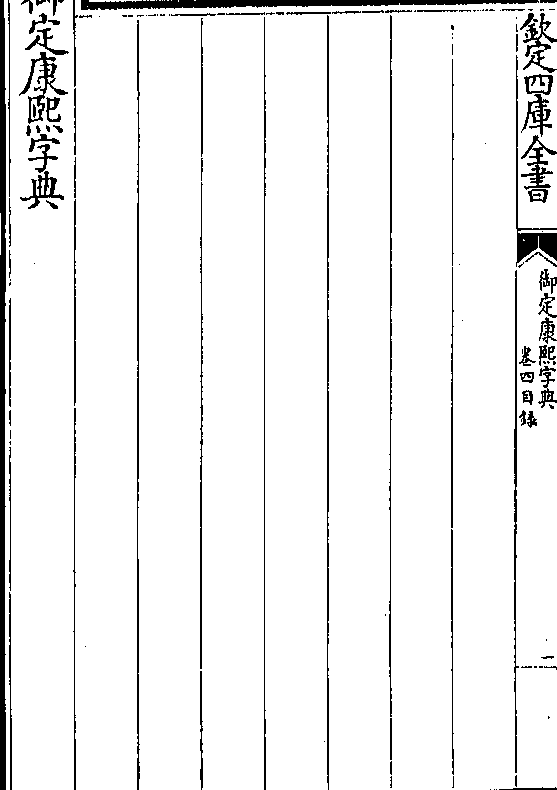 欽定四庫全書
御定康熙字典
卷四目録
一
御定康熙字典